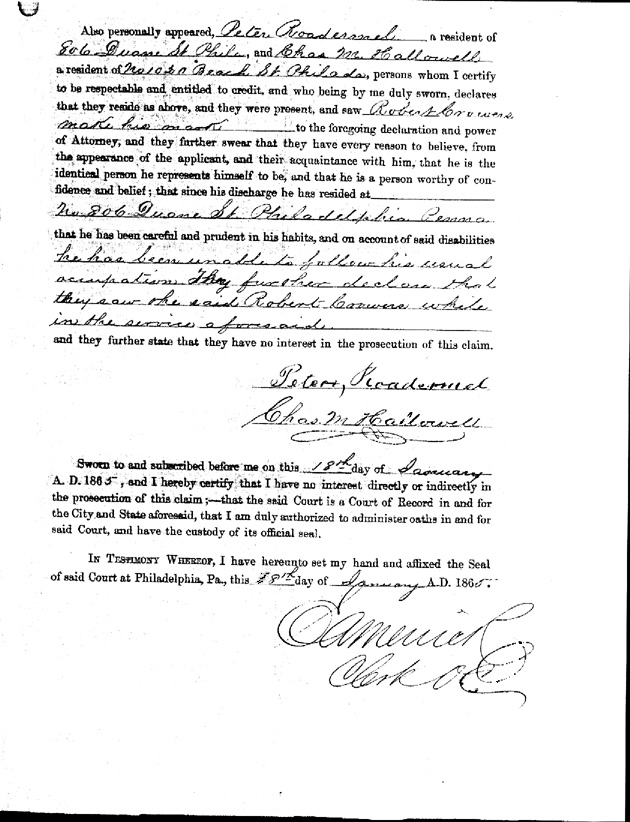 Also personally appeared, Peter Roadermel a resident of
806 Duane St Phila, and Chas M. Hallowell
a resident of No 1030 Beach St Philada, persons whom I certify
to be respectable and entitled to credit, and who being by me duly sworn, declares
that they reside as above, and they were present, and saw Robert Conwers
make his mark to the foregoing declaration and power
of Attorney, and they further swear that they have every reason to believe, from
the appearance of the applicant, and their acquaintance with him, that he is the
identical person he represents himself to be, and that he is a person worthy of con-
fidence and belief; that since his discharge he has resided at
No 806 Duane St Philadelphia Penna
that he has been careful and prudent in his habits, and on account of said disabilities
he has been unable to follow his usual
occupation They further declare that
they saw the said Robert Conwers while
in the service aforesaid
and they further state that they have no interest in the prosecution of this claim.
Peter, Roadermel
Chas. M Hallowell
Sworn to and subscribed before me on this 18th day of January
A. D. 1865, and I hereby certify that I have no interest directly or indirectly in
the prosecution of this claim;—that the said Court is a Court of Record in and for
the City and State aforesaid, that I am duly authorized to administer oaths in and for
said Court, and have the custody of its official seal.
In Testimony Whereof, I have hereunto set my hand and affixed the Seal
of said Court at Philadelphia, Pa., this 18th day of January A.D. 1865.
EAMerrick
Clerk